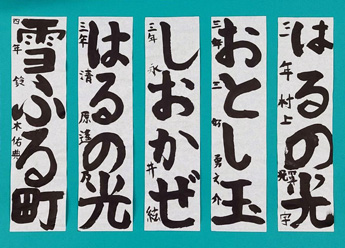 はるの光
二年 村上
おとし玉
三年 三 勇之介
しおかぜ
三年 永井 絃
はるの光
三年 清原 遥乃
雪ふる町
四年 鈴木佑典